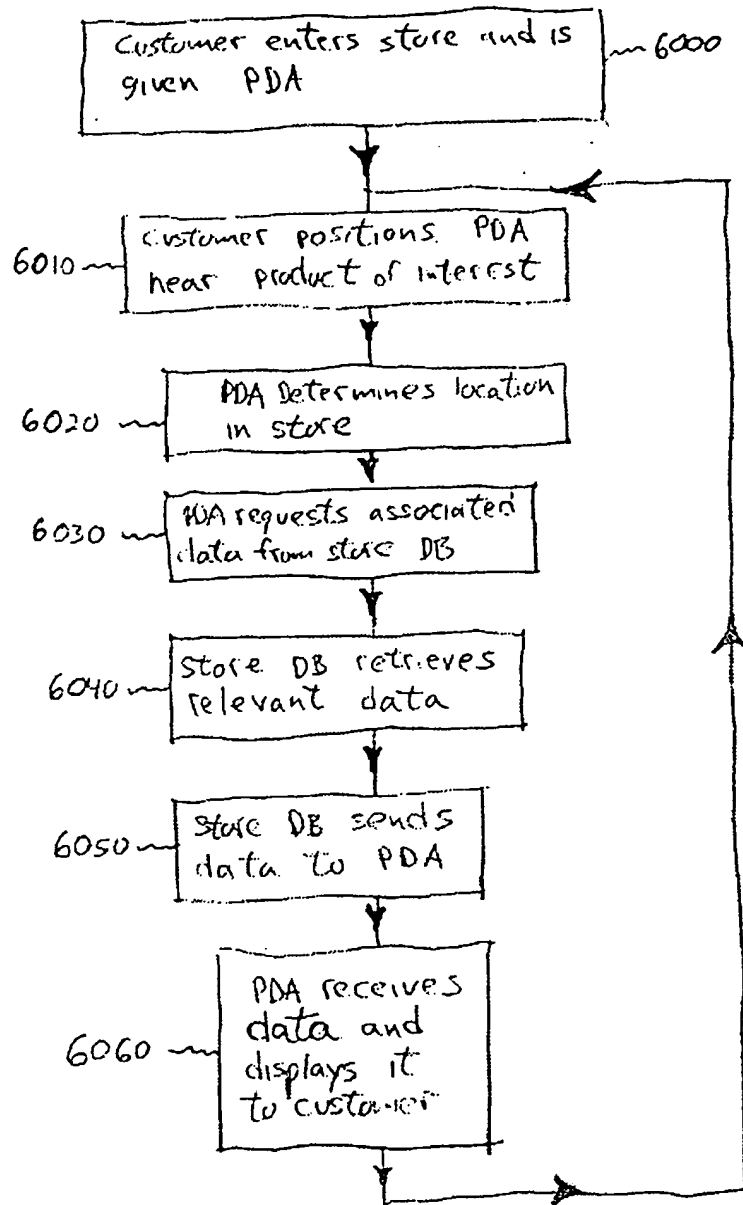 Customer enters store and is
given PDA
6000
6010
customer positions PDA
near product of interest
6020
PDA Determines location
in store
6030
PDA requests associated
data from store DB
6040
store DB retrieves
relevant data
6050
store DB sends
data to PDA
6060
PDA receives
data and
displays it
to customer